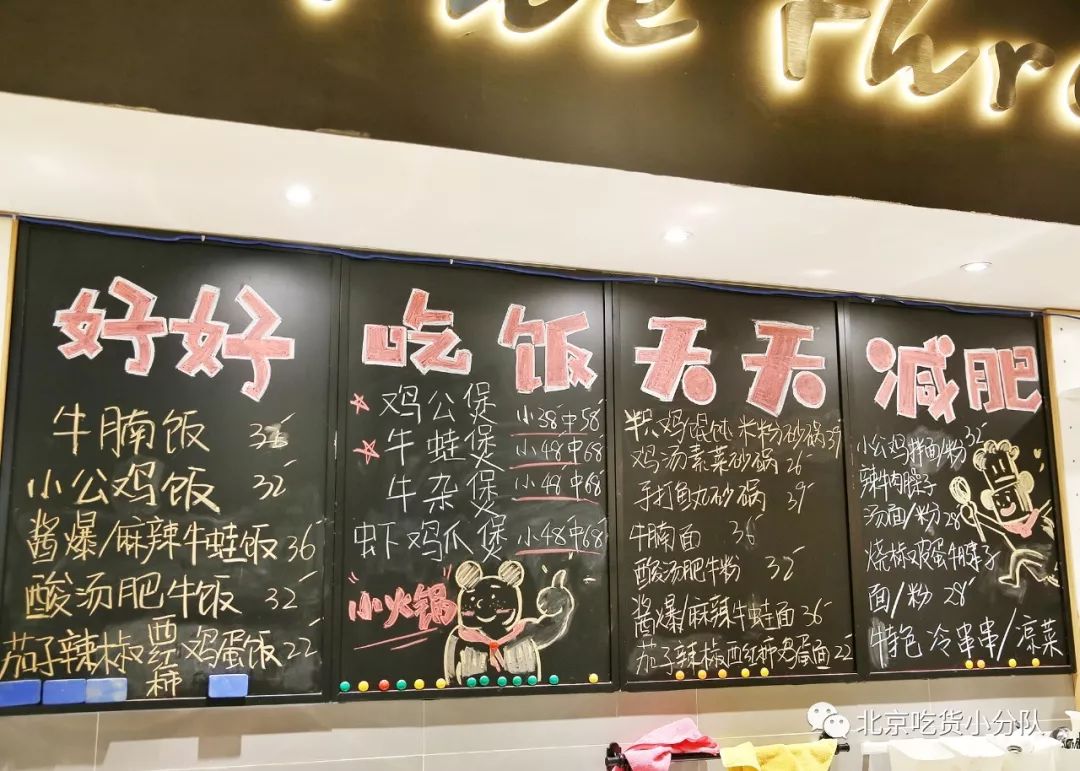 好好 吃饭 天天 减肥
牛腩饭
小公鸡饭 32
酱爆/麻辣牛蛙饭 36
酸汤肥牛饭 32
茄子辣椒西红柿鸡蛋饭 22
鸡公煲 小38中58
牛蛙煲 小48中68
牛杂煲 小48中68
虾鸡爪煲 小48中68
小火锅
半只鸡馄饨米粉砂锅39
鸡汤素菜砂锅 26
手打鱼丸砂锅 39
牛腩面 36
酸汤肥牛粉 32
酱爆/麻辣牛蛙面 36
茄子辣椒西红柿鸡蛋面 22
小公鸡拌面/粉 32
辣牛肉臊子
汤面/粉 28
烧椒鸡蛋牛臊子
面/粉 28
特色 冷串串/凉菜
北京吃货小分队